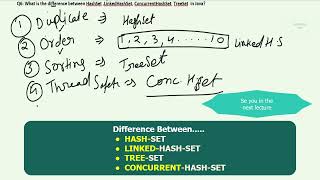 Q6: What is the difference between HashSet, LinkedHashSet, ConcurrentHashSet, TreeSet in Java?
① Duplicate → HashSet
② Order → 1, 2, 3, 4 ...... 10 Linked H S
③ Sorting → TreeSet
④ Thread Safety → Conc. HSet
So you in the
next lecture
Difference Between.....
• HASH-SET
• LINKED-HASH-SET
• TREE-SET
• CONCURRENT-HASH-SET